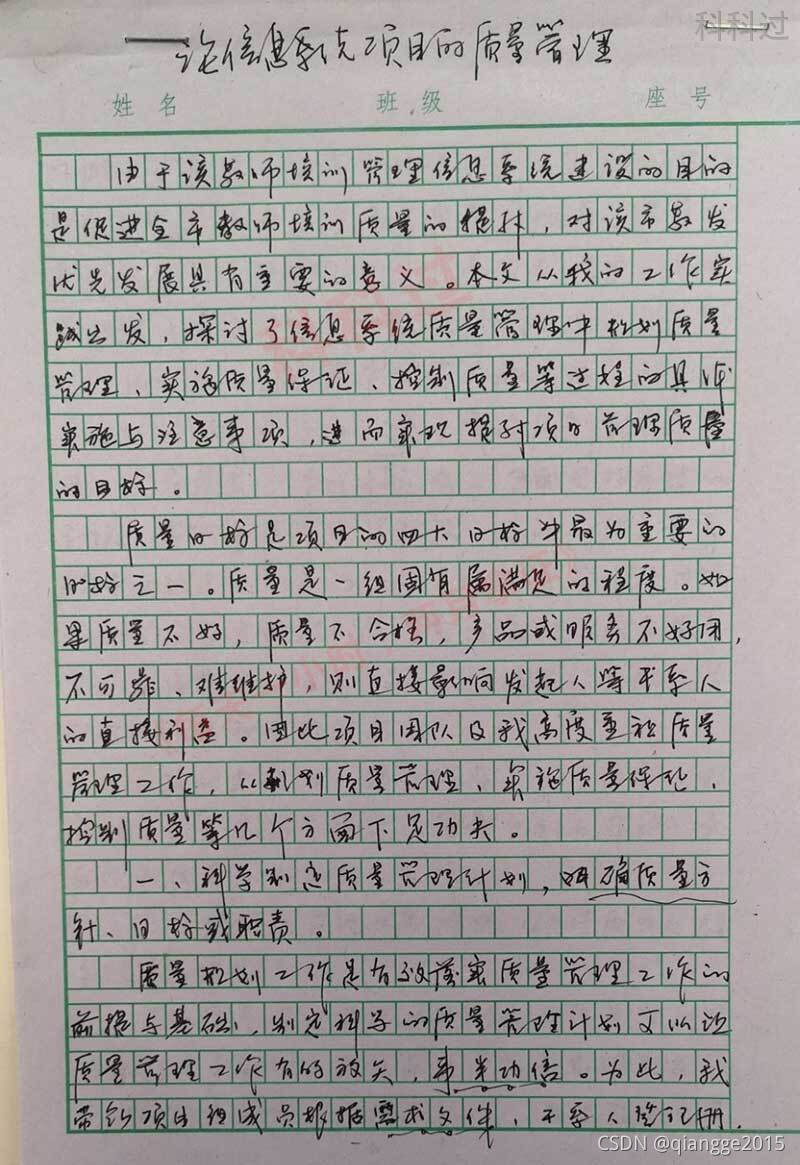 科科过
论信息系统项目的质量管理
姓名 班级 座号
由于该教师培训管理信息系统建设的目的
是促进全市教师培训质量的提升，对该市教育
优先发展具有重要的意义。本文从我的工作实
践出发，探讨了信息系统质量管理中规划质量
管理、实施质量保证、控制质量等过程的具体
实施与注意事项，进而实现提升项目管理质量
的目标。
质量目标是项目的四大目标中最为重要的
目标之一。质量是一组固有属满足的程度。如
果质量不好，质量不合格，产品或服务不好用，
不可靠、难维护，则直接影响发起人等干系人
的直接利益。因此项目团队及我高度重视质量
管理工作，从规划质量管理、实施质量保证、
控制质量等几个方面下足功夫。
一、科学制定质量管理计划，明确质量方
针、目标或职责。
质量规划工作是有效落实质量管理工作的
前提与基础，制定科学的质量管理计划可以让
质量管理工作有的放矢，事半功倍。为此，我
带领项目组成员根据需求文件，干系人登记册，
CSDN @qiangge2015